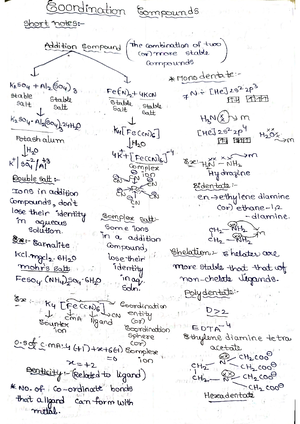 Coordination Compounds
Short notes:-
Addition Compound
(The combination of two (or) more stable compounds
K2SO4 + Al2(SO4)3
Stable Salt
Stable Salt
K2SO4.Al2(SO4)3.24H2O
Potash alum
↓H2O
K+ / SO4-2 / Al+3
Double Salt:-
Ions in addition
Compounds, don't
lose their identity
in aqueous
solution.
Ex:- Carnalite
KCl.MgCl2.6H2O
Mohr's Salt
FeSO4.(NH4)2SO4.6H2O
Fe(CN)2 + 4KCN
Stable Salt
Stable Salt
K4[Fe(CN)6]
↓H2O
4K+ + [Fe(CN)6]-4
Complex ion
Complex Salt:-
Some ions
in a addition
Compound,
lose their
identity
in aq.
Soln.
Ex:- K4 [Fe(CN)6]
Counter ion
CMA
ligand
Coordination
entity
(or)
Coordination
Sphere
(or)
Complex
ion
x = +2
Denticity:- (Related to ligand)
* No. of Co-ordinate bonds
that a ligand can form with
metal.
* Monodentate:-
7N ÷ [He] 2s2 2p3
[He] 2s2 2p4
Ex:- H2N - NH2
Hydrazine
Bidentate:-
en → ethylene diamine
(or) ethane-1,2
- diamine.
CH2 - NH2
CH2 - NH2
Chelation:- Chelates are
more Stable that that of
non-chelate ligands.
Polydentate:-
D>2
EDTA-4
Ethylene diamine tetra
acetate
CH2 - N
CH2COO-
CH2COO-
CH2 - N
CH2COO-
CH2COO-
Hexadentate